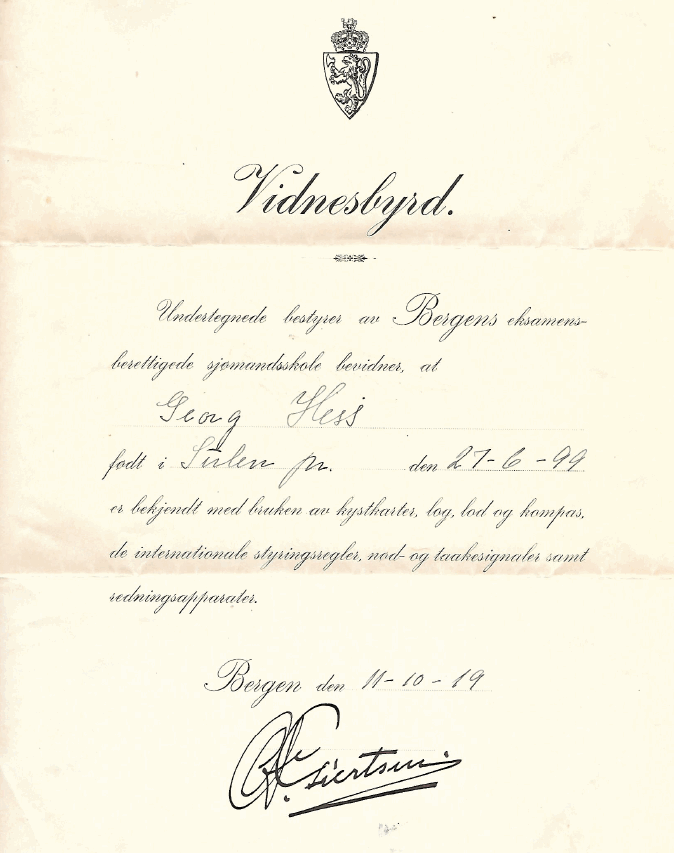 Vidnesbyrd.
Undertegnede bestyrer av Bergens eksamens-
berettigede sjømandsskole bevidner, at
Georg Hess
født i Sulen pr. den 27-6-99
er bekjendt med bruken av kystkarter, log, lod og kompas,
de internationale styringsregler, nød- og taakesignaler samt
redningsapparater.
Bergen den 11-10-19